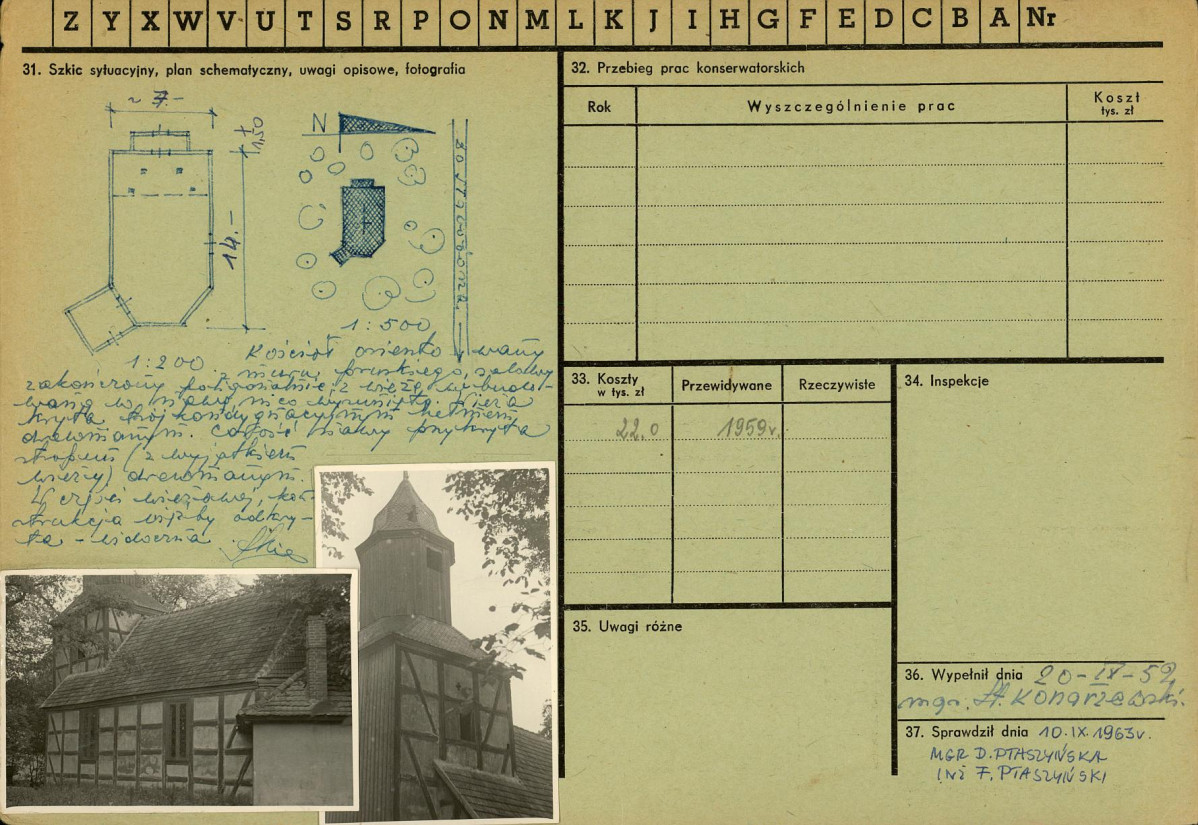 Z Y X W V U T S R P O N M L K J I H G F E D C B A Nr
31. Szkic sytuacyjny, plan schematyczny, uwagi opisowe, fotografia
~ 7.-
1,50
14.-
N
1:500
1:200
Kościół oriento wany
z muru pruskiego, salowy
zakończony poligonalnie z wieżą wybudo-
waną w nawę, nieco wysuniętą. Wieża
kryta hełmem
drewnianym. Całość nawy przykryta
stropem (z wyjątkiem
wieży) drewnianym.
W części wieżowej, kon-
strukcja więźby odkry-
ta - widoczna
32. Przebieg prac konserwatorskich
Rok
Wyszczególnienie prac
Koszt
tys. zł
33. Koszty
w tys. zł
Przewidywane
Rzeczywiste
22,0
1959r.
34. Inspekcje
35. Uwagi różne
36. Wypełnił dnia 20-IX-59
mgr. A. Konarzewski.
37. Sprawdził dnia 10.IX.1963r.
MGR D. PTASZYŃSKA
INŻ F. PTASZYŃSKI